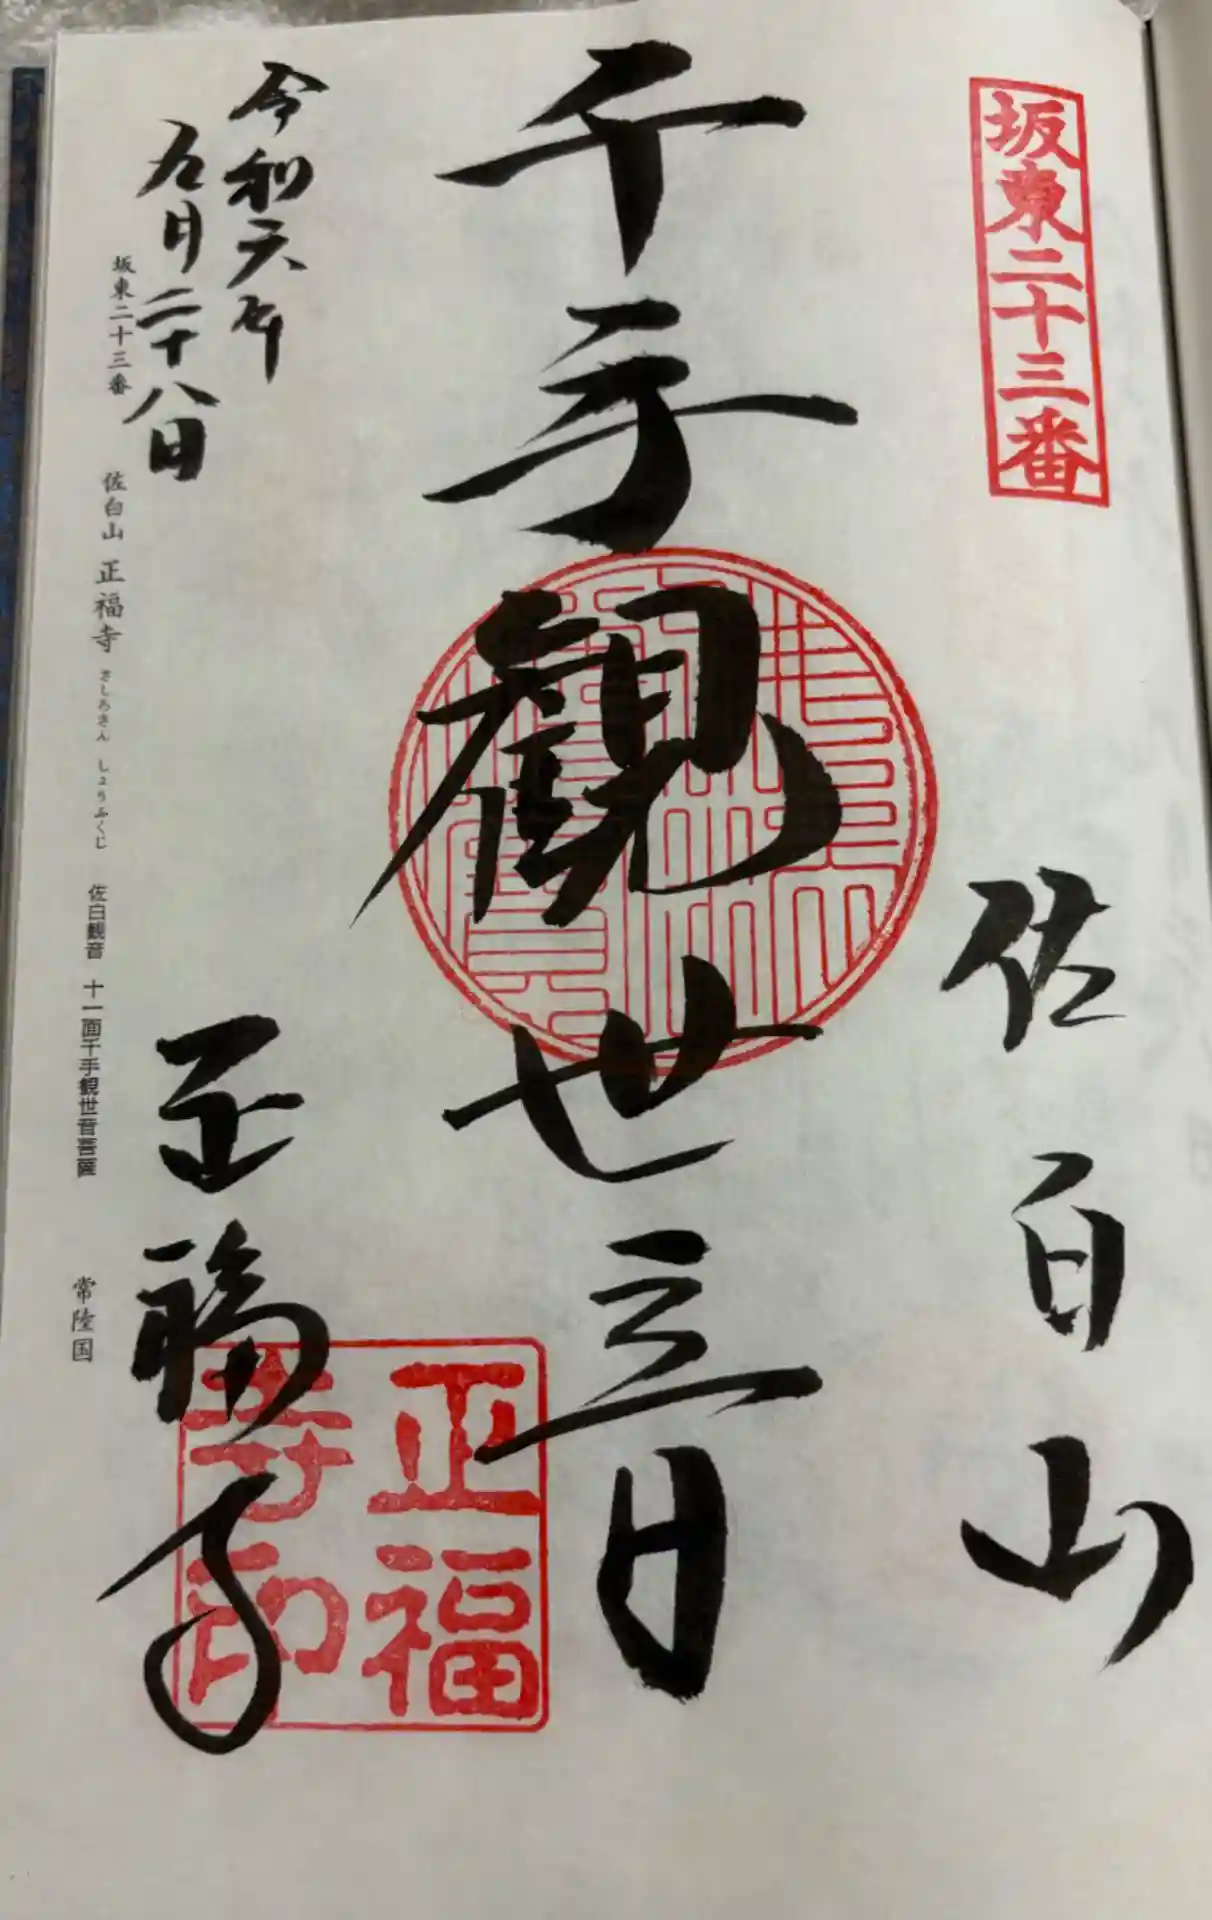 坂東二十三番
佐白山
千手観世音
令和六年
九月二十八日
正福寺
正福
寺印
坂東二十三番 佐白山 正福寺 さしろさん しょうふくじ 佐白観音 十一面千手観世音菩薩 常陸国